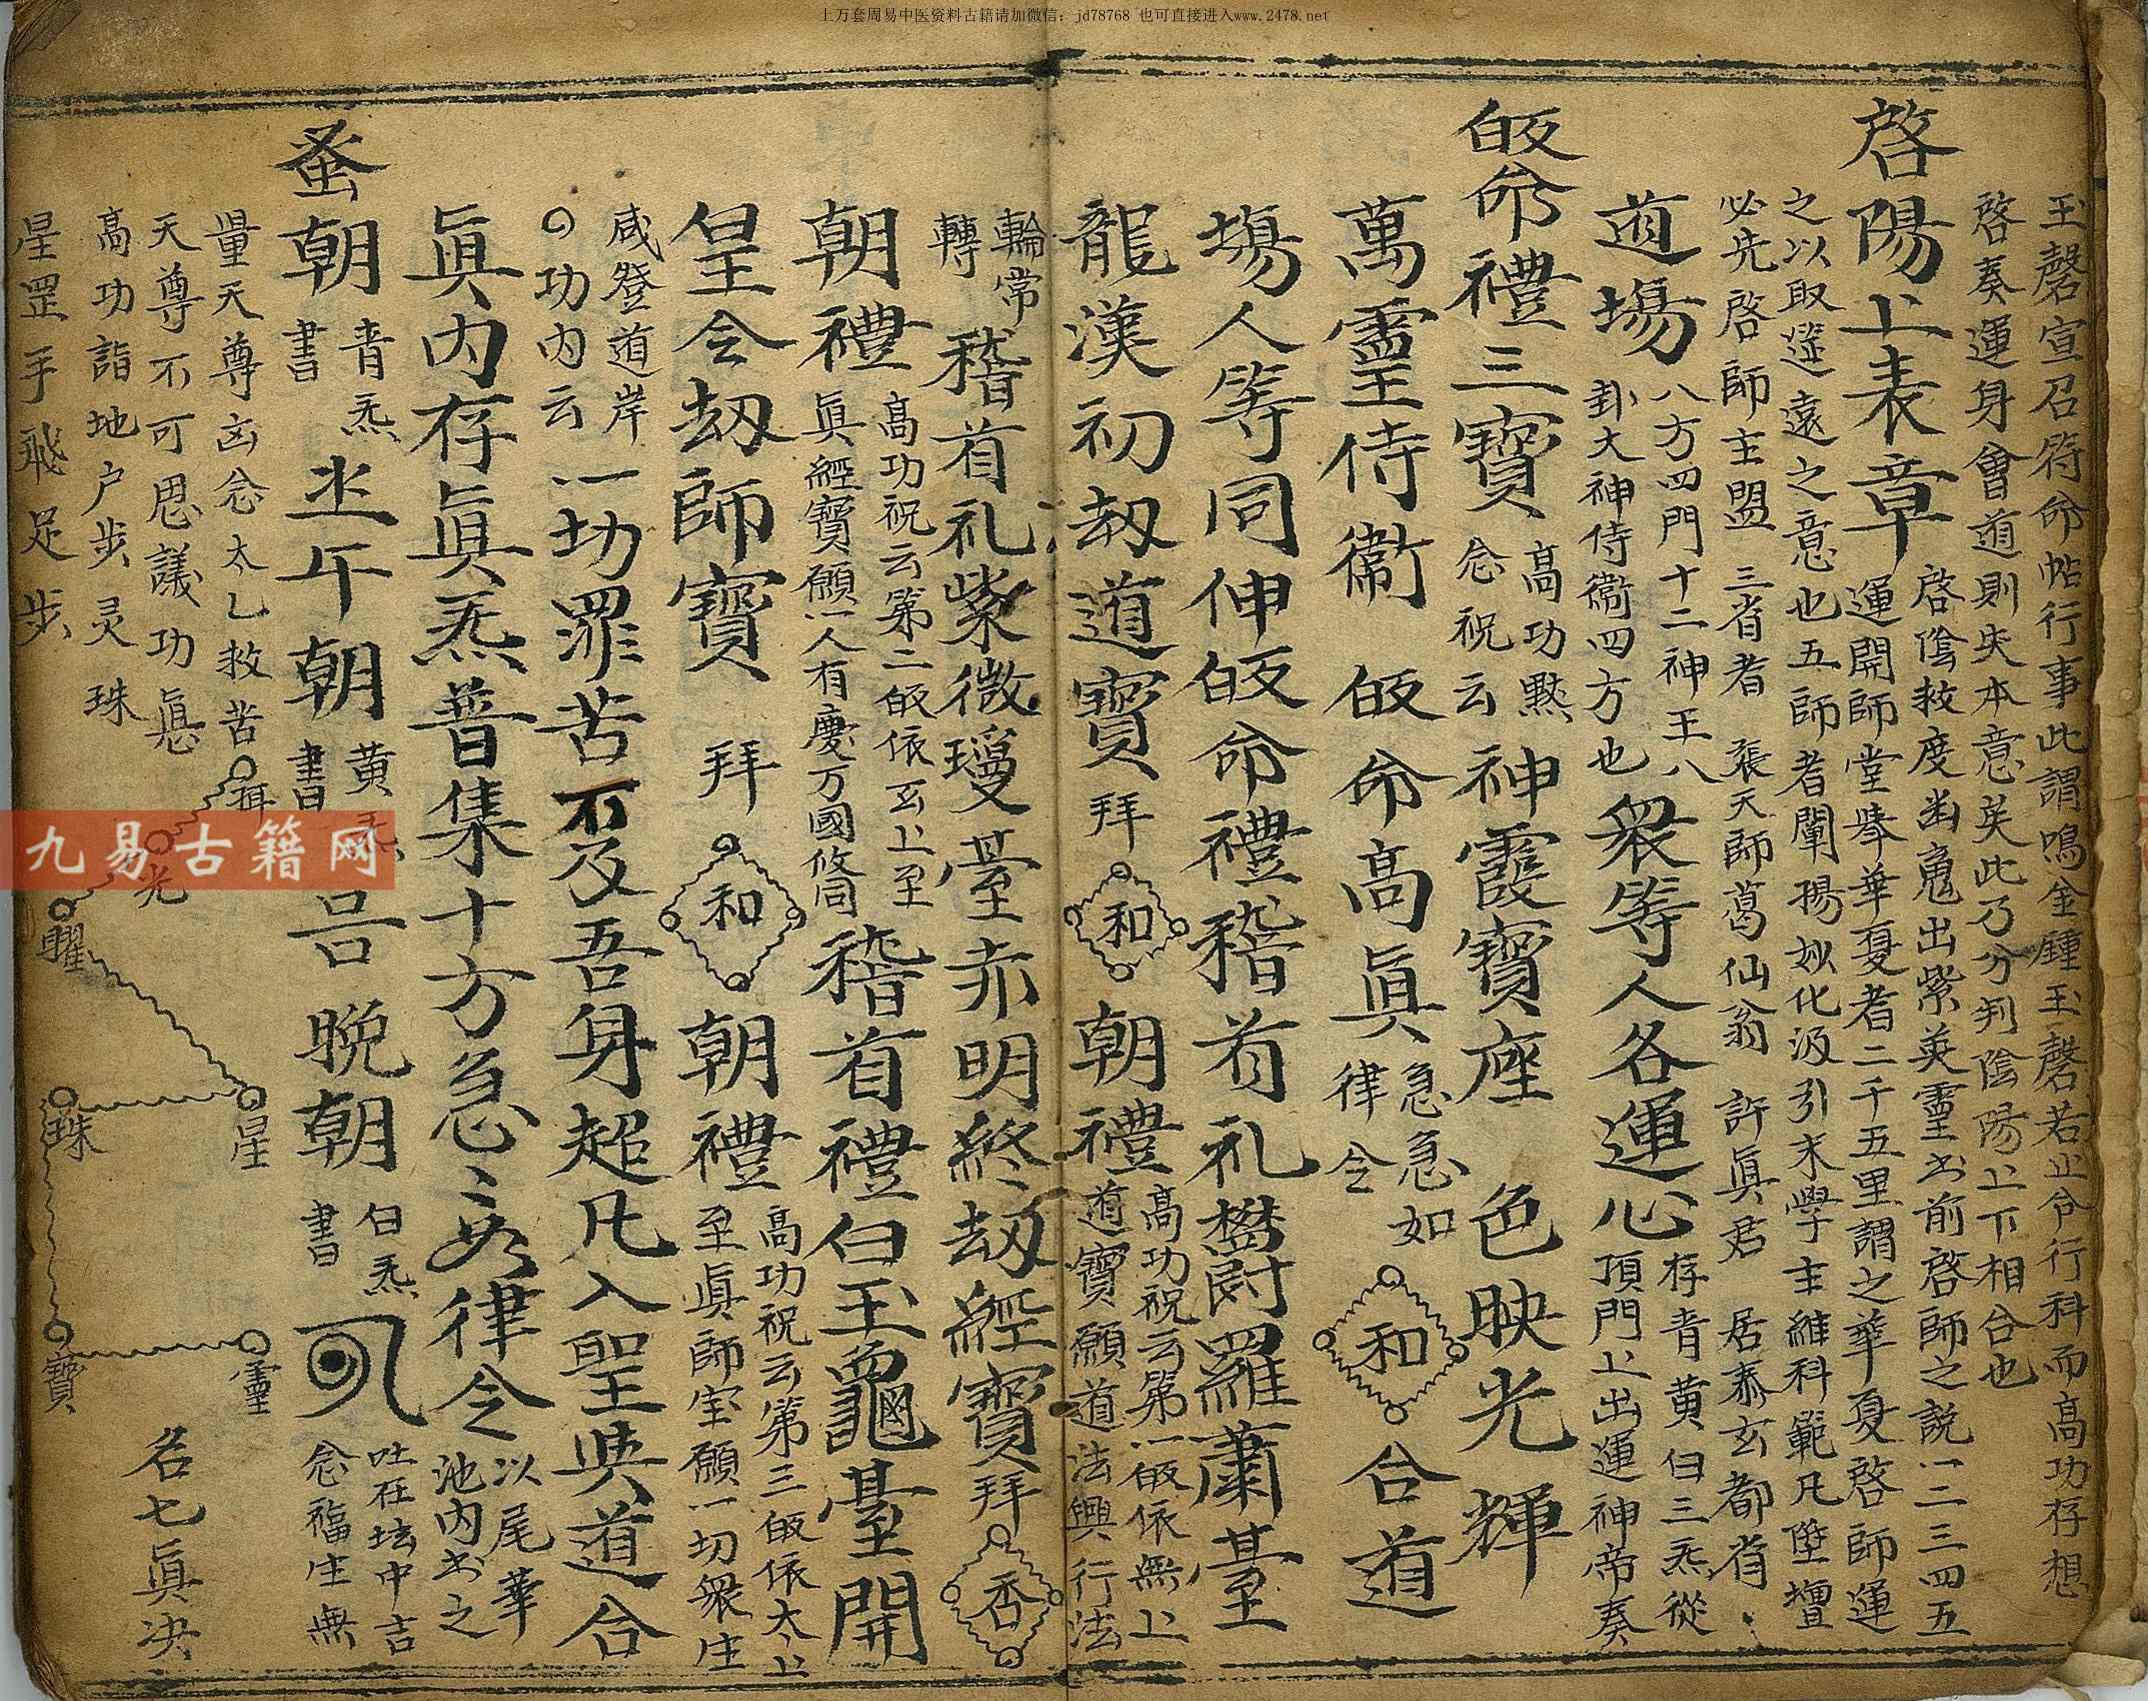 上万套周易中医资料古籍请加微信：jd78768 也可直接进入www.2478.net
玉磬宣召符命帖行事此謂鳴金鐘玉磬若止令行科而高功存想
啓奏運身會道則失本意矣此乃分判陰陽上下相合也
啓陽上表章
啓陰救度幽魂出紫英靈出前啓師之説一二三四五
運開師堂擧華夏者二千五里謂之華夏啓師運
之以取遥遠之意也五師者闡揚妙化汲引末學主維科範凡陞壇
必先啓師主盟 三省者 張天師葛仙翁 許眞君 居泰玄都省
道場
八方四門十二神王八
卦大神侍衛四方也
衆等人各運心
存青黄白三炁從
頂門上出運神帝奏
皈命禮三寶
高功黙
念祝云
神霞寶座 色映光輝
萬靈侍衛 皈命高眞
急急如
律令
和
合道
場人等同伸皈命禮稽首礼欝羅蕭臺
龍漢初刼道寶
拜
和
朝禮
高功祝云第一皈依無上
道寶願道法興行法
輪常
轉
稽首礼紫微
臺赤明終刼經寶
拜
香
朝禮
高功祝云第二皈依玄上至
眞經寶願一人有慶万國攸同
稽首禮白玉龜臺開
皇令刼師寶
拜
和
朝禮
高功祝云第三皈依太上
至眞師宝願一切衆生
咸登道岸
功内云
一切罪苦不及吾身超凡入聖與道合
眞内存眞炁普集十方急
律令
以尾華
池内出之
蚤朝
青炁
書
午朝
黄炁
書
晩朝
白炁
書
吐在坛中吉
念福生無
量天尊
念太乙救苦
天尊不可思議功
高功詣地户步灵珠
星罡手飛足步
光
曜
星
珠
寶
靈
名七眞决
九易古籍网